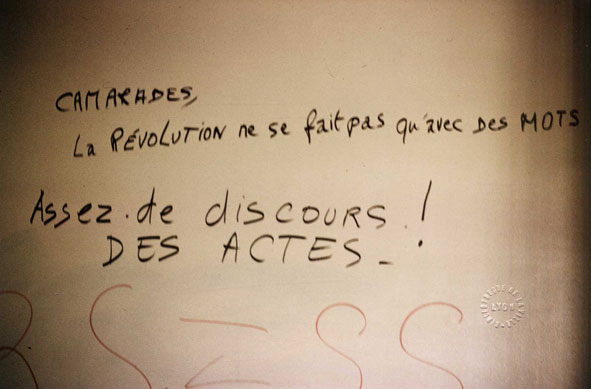 CAMARADES,
La RÉVOLUTION ne se fait pas qu'avec Des MOTS
Assez de discours !
DES ACTES _ !
CRS = SS
LYON